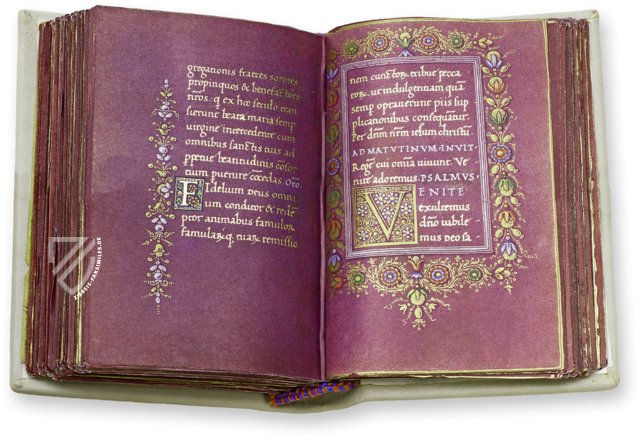 gregationis fratres sorores
propinquos & benefactores
nr̄os. q ex hac seculo tran
sierunt beata maria semp
uirgine intercedente cum
omnibus sanctis tuis ad
ppetue beatitudinis
tium peruenire cōcedas. Oro
Fidelium deus omni
um conditor & redē
ptor animabus famulor̨
famular̨.q. tuar̨ remissio
nem cunctor̨. tribue pecca
tor̨. ut indulgentiam quā
semp optauerunt piis sup
plicationibus consequātur.
Per dn̄m nr̄m iesum christū
AD MATVTINVM INVIT
Regē cui omīa uiuunt. Ve
nite adoremus. PSALMVS
VENITE
exultemus
dn̄o iubile
mus deo sa
ZIEREIS-FAKSIMILES.DE